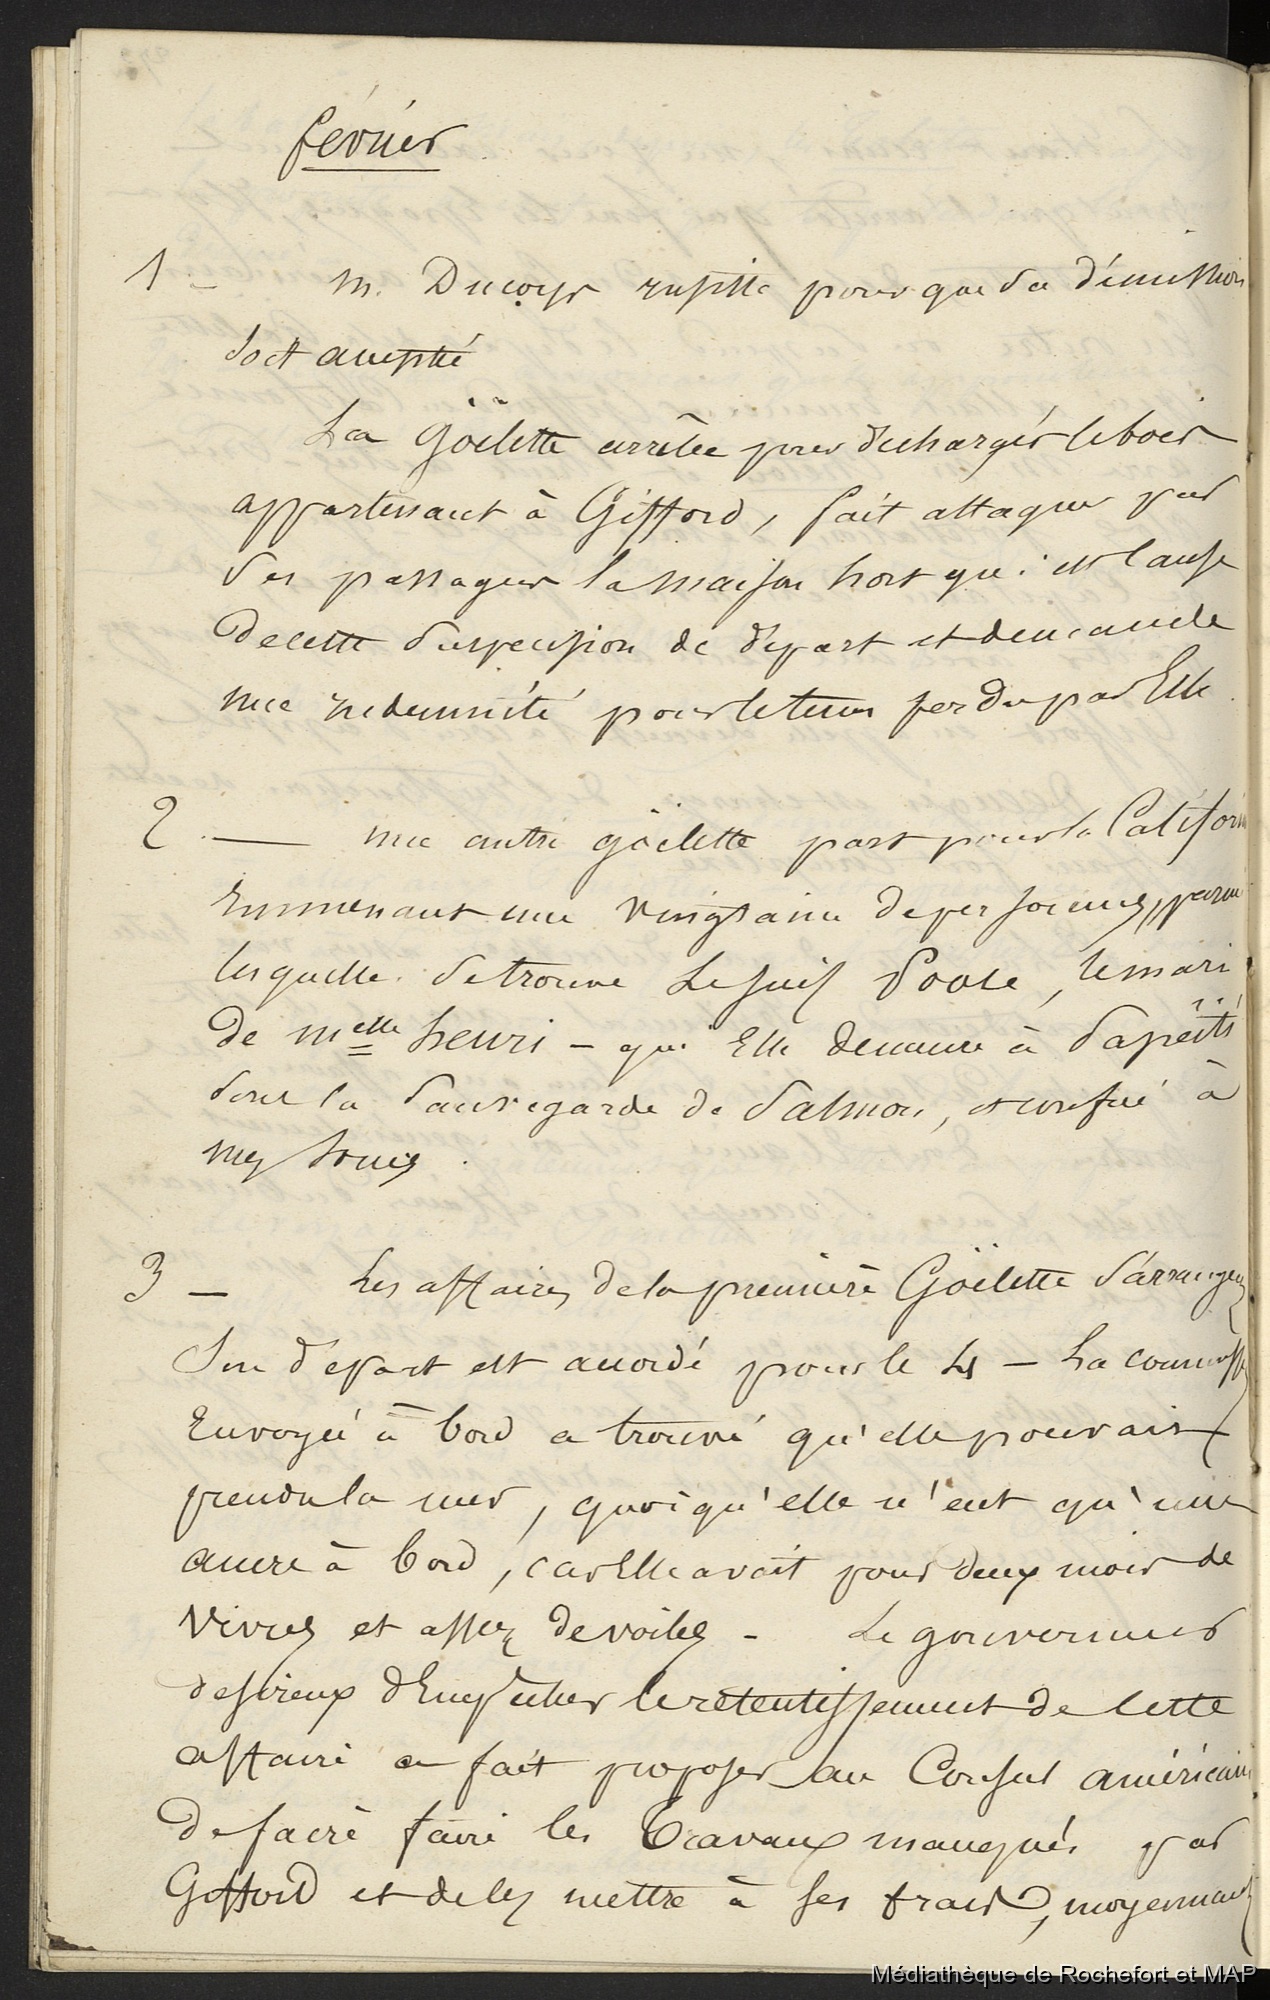 février
1 - M. Ducorps insiste pour que sa démission
soit acceptée
La Goëlette arrêtée pour décharger le bois
appartenant à Gifford, fait attaquer par
ses passagers la maison hort qui est cause
de cette suspension de départ et demande
une indemnité pour le tems perdu par Elle.
2 — une autre goëlette part pour la Californie
Emmenant une vingtaine de personnes, parmi
lesquelle se trouve Le juif Poole, le mari
de Melle henri - qui Elle demeure à Papëiti
sous la Sauvegarde de Salmon, et confié à
mes soins.
3 — Les affaires de la première Goëlette s'arrangent
Son départ est accordé pour le 4 — La commission
Envoyée à bord a trouvé qu'elle pouvait
prendre la mer, quoiqu'elle n'eut qu'une
ancre à bord, car Elle avait pour deux mois de
vivres et assez de voiles - Le gouverneur
desireux d'Empêcher le retentissement de cette
affaire a fait proposer au Consul américain
de faire faire les travaux manqués par
Gifford et de les mettre à ses frais, moyennant
Médiathèque de Rochefort et MAP